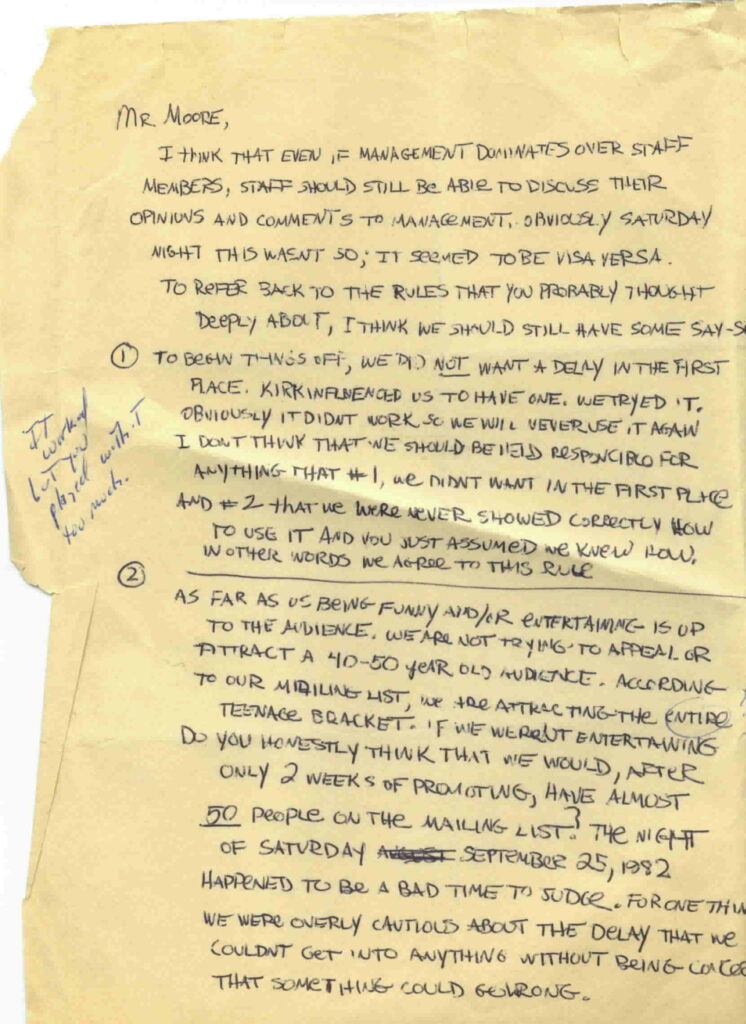 MR MOORE,
I THINK THAT EVEN IF MANAGEMENT DOMINATES OVER STAFF
MEMBERS, STAFF SHOULD STILL BE ABLE TO DISCUSE THEIR
OPINIONS AND COMMENTS TO MANAGEMENT. OBVIOUSLY SATURDAY
NIGHT THIS WASNT SO; IT SEEMED TO BE VISA VERSA.
TO REFER BACK TO THE RULES THAT YOU PROBABLY THOUGHT
DEEPLY ABOUT, I THINK WE SHOULD STILL HAVE SOME SAY-S
① TO BEGIN THINGS OFF, WE DID NOT WANT A DELAY IN THE FIRST
PLACE. KIRK INFLUENCED US TO HAVE ONE. WE TRYED IT.
OBVIOUSLY IT DIDNT WORK SO WE WILL NEVER USE IT AGAIN
I DONT THINK THAT WE SHOULD BE HELD RESPONCIBLE FOR
ANYTHING THAT #1, WE DIDNT WANT IN THE FIRST PLACE
AND #2 THAT WE WERE NEVER SHOWED CORRECTLY HOW
TO USE IT AND YOU JUST ASSUMED WE KNEW HOW.
IN OTHER WORDS WE AGREE TO THIS RULE
IT
worked
but you
played with it
too much.
②
AS FAR AS US BEING FUNNY AND/OR ENTERTAINING IS UP
TO THE AUDIENCE. WE ARE NOT TRYING TO APPEAL OR
ATTRACT A 40-50 YEAR OLD AUDIENCE. ACCORDING
TO OUR MAILING LIST, WE ARE ATTRACTING THE ENTIRE
TEENAGE BRACKET. IF WE WERENT ENTERTAINING
DO YOU HONESTLY THINK THAT WE WOULD, AFTER
ONLY 2 WEEKS OF PROMOTING, HAVE ALMOST
50 PEOPLE ON THE MAILING LIST? THE NIGHT
OF SATURDAY AUGUST SEPTEMBER 25, 1982
HAPPENED TO BE A BAD TIME TO JUDGE. FOR ONE THIN
WE WERE OVERLY CAUTIOUS ABOUT THE DELAY THAT WE
COULDNT GET INTO ANYTHING WITHOUT BEING CONCE
THAT SOMETHING COULD GO WRONG.